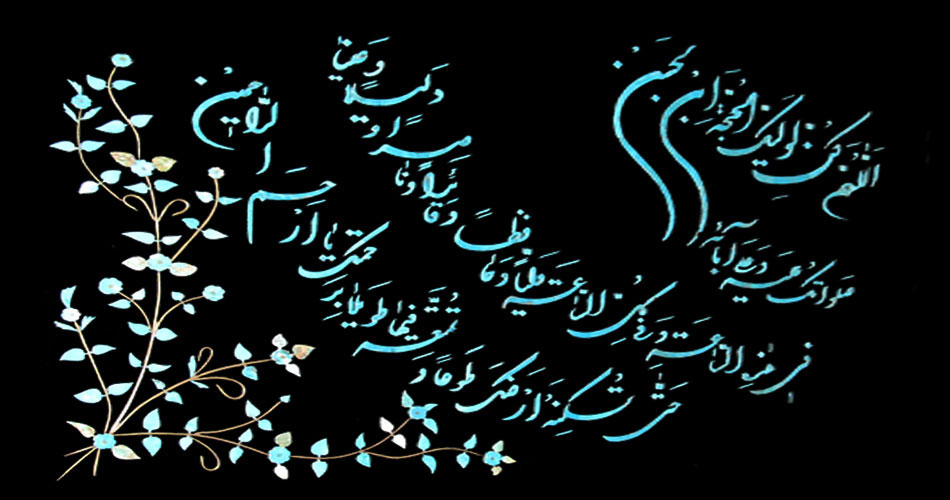 اللهم کن لولیک الحجة ابن الحسن
صلواتک علیه و علی آبائه
فی هذه الساعة و فی کل الساعة ولیاً و حافظاً و قائداً و ناصراً و دلیلاً و عیناً
حتی تسکنه ارضک طوعاً و تمتعه فیها طویلا برحمتک یا ارحم الراحمین